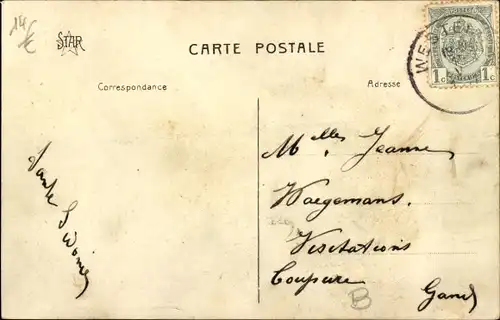 14/€
STAR
CARTE POSTALE
Correspondance
Adresse
1c 1c
Melles Jeanne
Waegemans.
Visitations
Coupure Gand
Tante
B